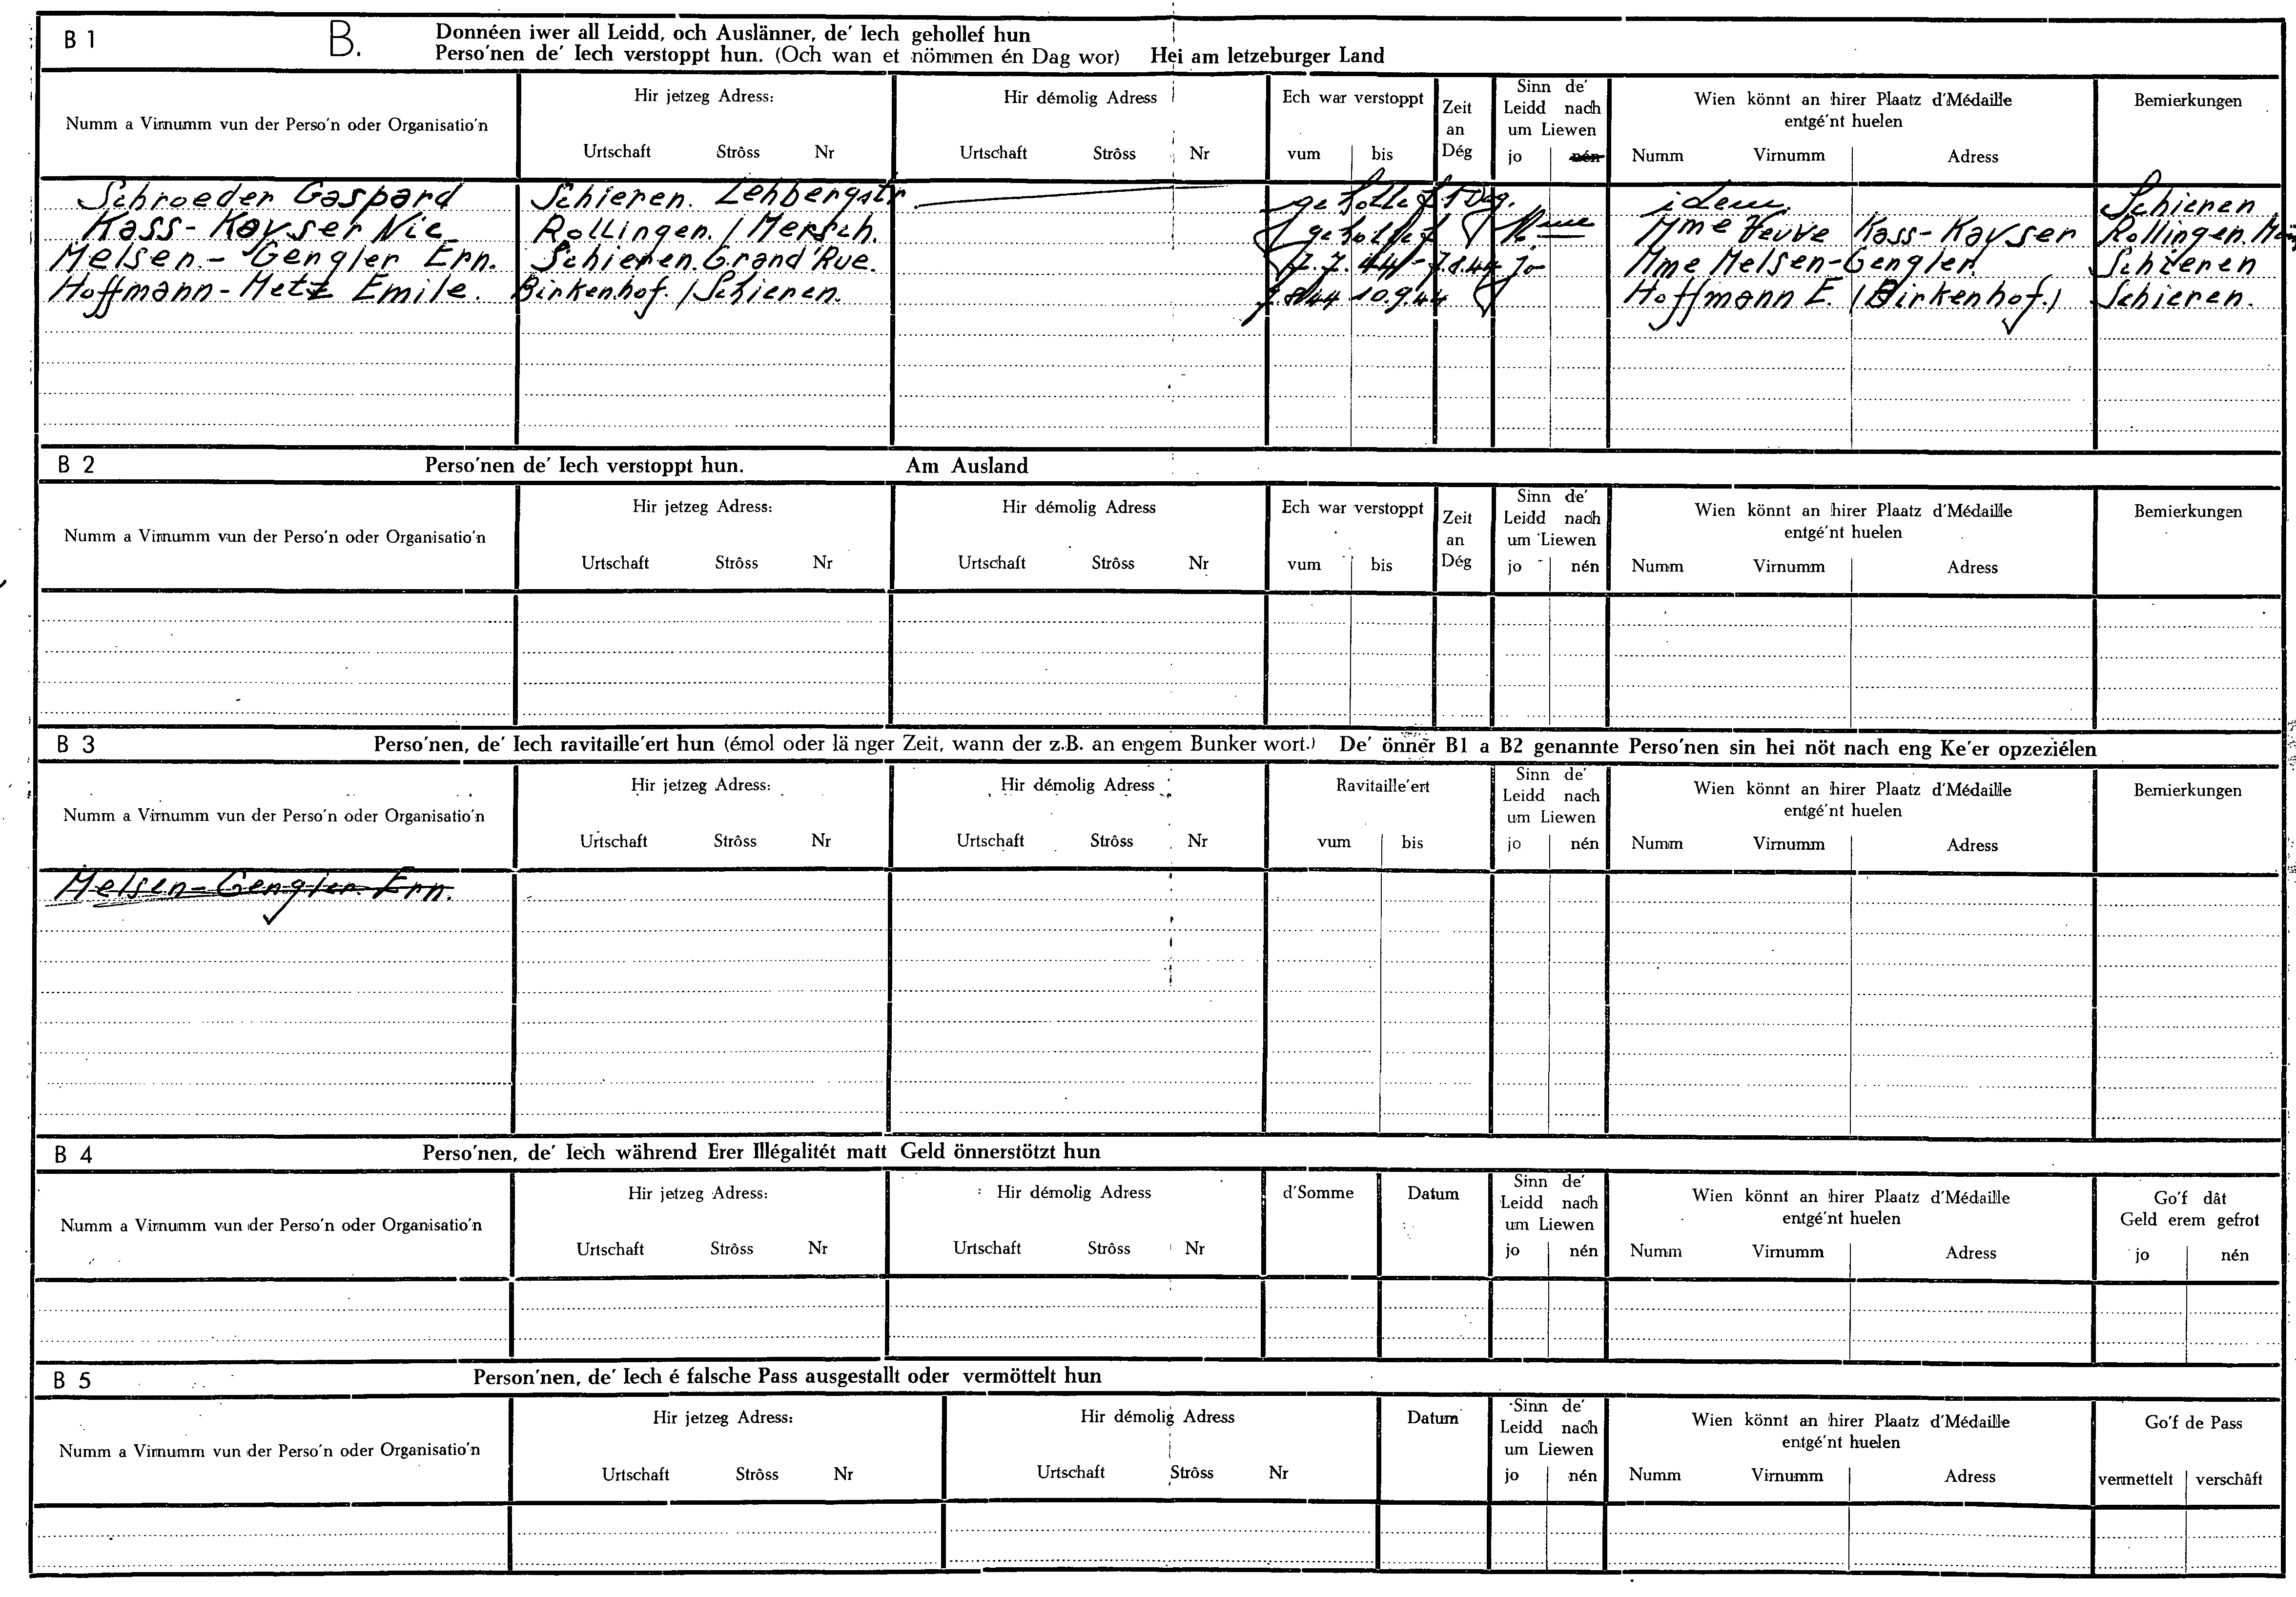 B 1 B. Donnéen iwer all Leidd, och Auslänner, de' Iech gehollef hun
Perso'nen de' Iech verstoppt hun. (Och wan et nömmen én Dag wor) Hei am letzeburger Land
Numm a Virnumm vun der Perso'n oder Organisatio'n
Hir jetzeg Adress:
Urtschaft Strôss Nr
Hir démolig Adress
Urtschaft Strôss Nr
Ech war verstoppt
vum bis
Zeit
an
Dég
Sinn de'
Leidd nach
um Liewen
jo nén
Wien könnt an hirer Plaatz d'Médaille
entgé'nt huelen
Numm Virnumm Adress
Bemierkungen
Schroeder Gaspard Schieren. Lehbergstr gehollef 1 Dag. idem. Schieren
Kass-Kayser Nic Rollingen. / Mersch. gehollef Mme Veuve Kass-Kayser Rollingen.
Melsen-Gengler Ern. Schieren. Grand Rue. 7.7.44 - 7.8.44 jo Mme Melsen-Gengler. Schieren
Hoffmann-Metz Emile. Birkenhof. / Schieren. 7.8.44 10.9.44 Hoffmann E. (Birkenhof.) Schieren.
B 2 Perso'nen de' Iech verstoppt hun. Am Ausland
Numm a Virnumm vun der Perso'n oder Organisatio'n
Hir jetzeg Adress:
Urtschaft Strôss Nr
Hir démolig Adress
Urtschaft Strôss Nr
Ech war verstoppt
vum bis
Zeit
an
Dég
Sinn de'
Leidd nach
um Liewen
jo nén
Wien könnt an hirer Plaatz d'Médaille
entgé'nt huelen
Numm Virnumm Adress
Bemierkungen
B 3 Perso'nen, de' Iech ravitaille'ert hun (émol oder länger Zeit, wann der z.B. an engem Bunker wort.) De' önner B1 a B2 genannte Perso'nen sin hei nöt nach eng Ke'er opzeziélen
Numm a Virnumm vun der Perso'n oder Organisatio'n
Hir jetzeg Adress:
Urtschaft Strôss Nr
Hir démolig Adress
Urtschaft Strôss Nr
Ravitaille'ert
vum bis
Sinn de'
Leidd nach
um Liewen
jo nén
Wien könnt an hirer Plaatz d'Médaille
entgé'nt huelen
Numm Virnumm Adress
Bemierkungen
Melsen-Gengler Ern.
B 4 Perso'nen, de' Iech während Erer Illégalitét matt Geld önnerstötzt hun
Numm a Virnumm vun der Perso'n oder Organisatio'n
Hir jetzeg Adress:
Urtschaft Strôss Nr
Hir démolig Adress
Urtschaft Strôss Nr
d'Somme
Datum
Sinn de'
Leidd nach
um Liewen
jo nén
Wien könnt an hirer Plaatz d'Médaille
entgé'nt huelen
Numm Virnumm Adress
Go'f dât
Geld erem gefrot
jo nén
B 5 Person'nen, de' Iech é falsche Pass ausgestallt oder vermöttelt hun
Numm a Virnumm vun der Perso'n oder Organisatio'n
Hir jetzeg Adress:
Urtschaft Strôss Nr
Hir démolig Adress
Urtschaft Strôss Nr
Datum
Sinn de'
Leidd nach
um Liewen
jo nén
Wien könnt an hirer Plaatz d'Médaille
entgé'nt huelen
Numm Virnumm Adress
Go'f de Pass
vermettelt verschâft